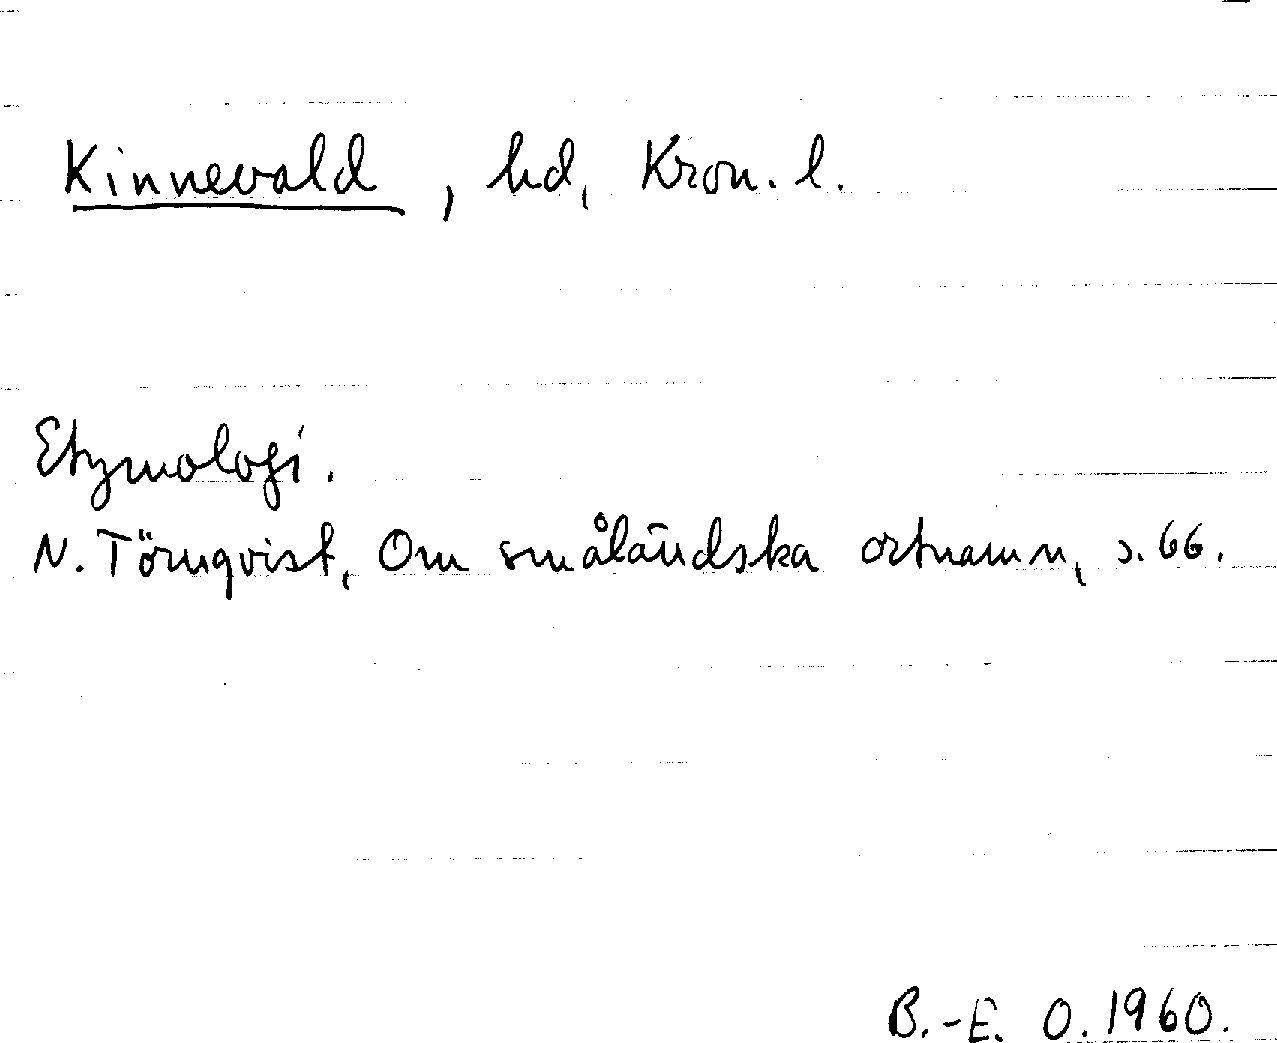 Kinnevald, hd, Kron. l.
Etymologi.
N. Törnqvist, Om småländska ortnamn, s. 66.
B.-E. O. 1960.